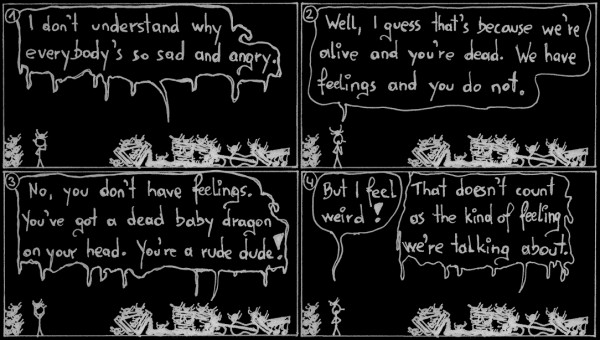 1
I don't understand why
everybody's so sad and angry.
2
Well, I guess that's because we're
alive and you're dead. We have
feelings and you do not.
3
No, you don't have feelings.
You've got a dead baby dragon
on your head. You're a rude dude!
4
But I feel
weird!
That doesn't count
as the kind of feeling
we're talking about.